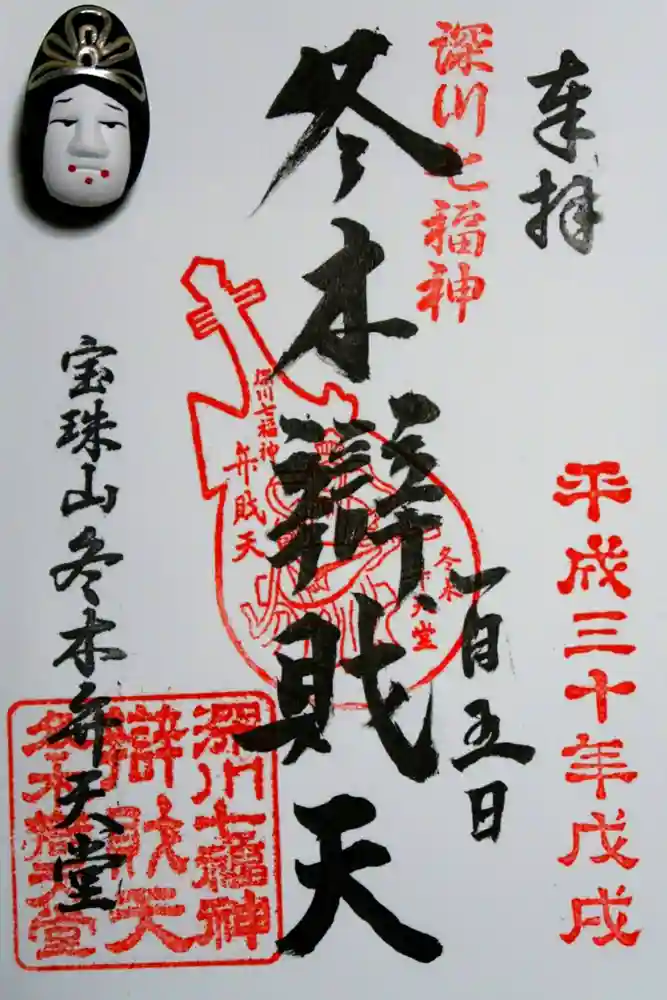 奉拝
深川七福神
平成三十年戊戌
一月五日
冬木辯財天
深川七福神
弁財天
冬木
弁天堂
宝珠山冬木弁天堂
深川七福神
辯財天
冬木弁天堂